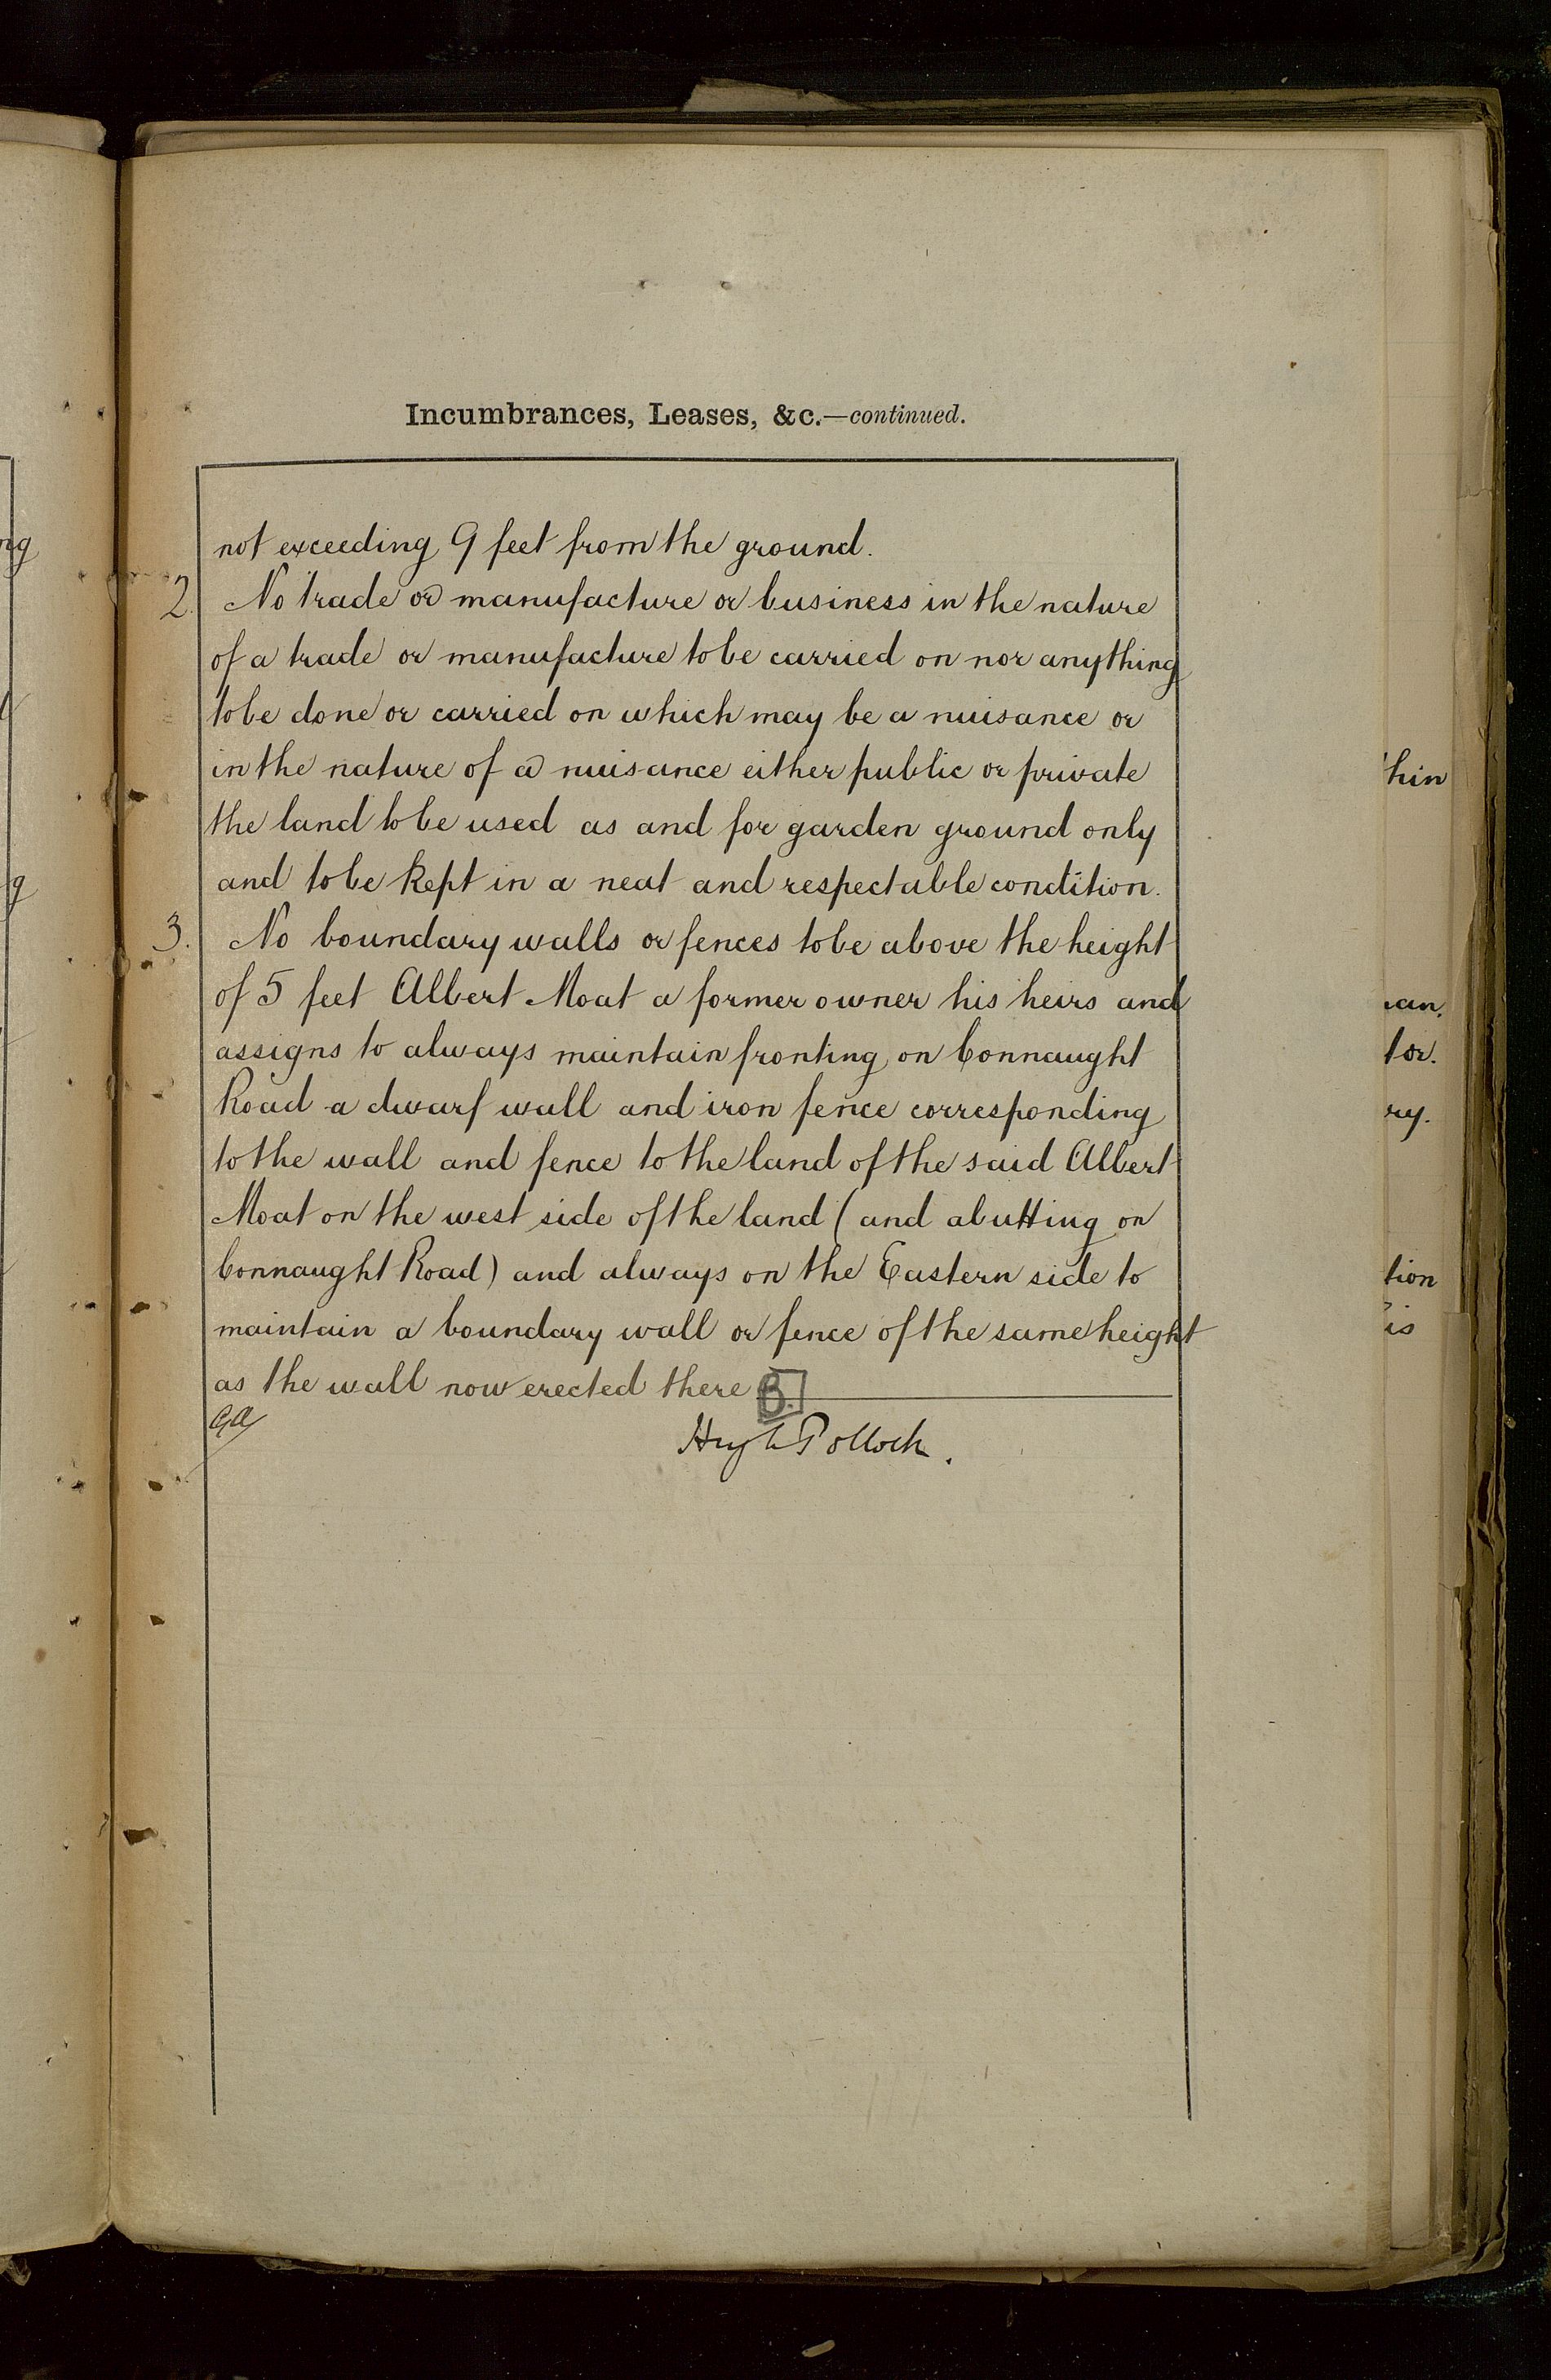 Incumbrances, Leases, &c.—continued.
not exceeding 9 feet from the ground.
2. No trade or manufacture or business in the nature
of a trade or manufacture to be carried on nor anything
to be done or carried on which may be a nuisance or
in the nature of a nuisance either public or private
the land to be used as and for garden ground only
and to be kept in a neat and respectable condition.
3. No boundary walls or fences to be above the height
of 5 feet Albert Moat a former owner his heirs and
assigns to always maintain fronting on Connaught
Road a dwarf wall and iron fence corresponding
to the wall and fence to the land of the said Albert
Moat on the west side of the land (and abutting on
Connaught Road) and always on the Eastern side to
maintain a boundary wall or fence of the same height
as the wall now erected there B.
Hugh Pollock.
ng
g
hin
an.
tor.
ry.
tion
is